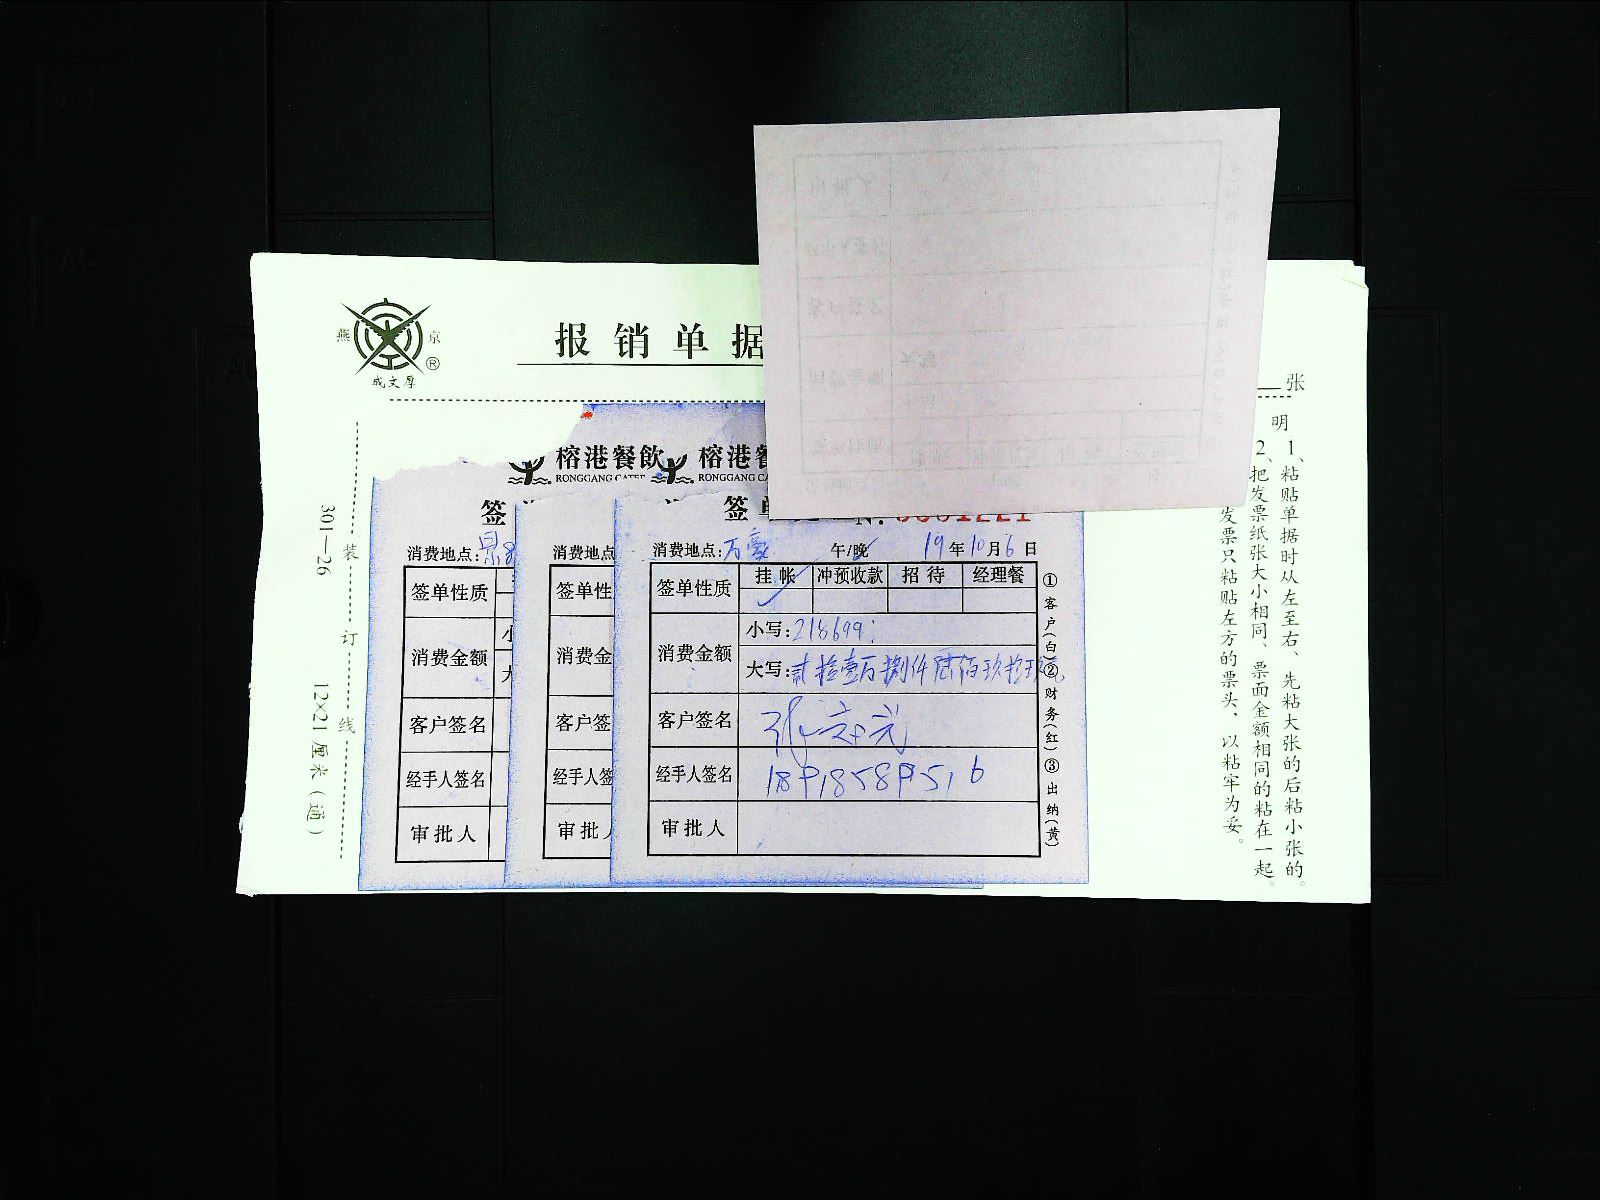 报销单据
燕京
®
成文厚
张
明
1、粘贴单据时从左至右、先粘大张的后粘小张的。
2、把发票纸张大小相同、票面金额相同的粘在一起。
发票只粘贴左方的票头、以粘牢为妥。
301—26 12×21厘米(通)
装订线
榕港餐飲
RONGGANG CATER
签
消费地点:
签单性质
消费金额
客户签名
经手人签名
审批人
榕港餐
RONGGANG CA
消费地点
签单性
消费金
客户签
经手人签
审批
签单
消费地点:万豪 午/晚 19年10月6日
签单性质 挂帐 冲预收款 招待 经理餐
消费金额 小写:218699
大写:贰拾壹万捌仟陆佰玖拾玖
客户签名
经手人签名
审批人
①客户(白)②财务(红)③出纳(黄)